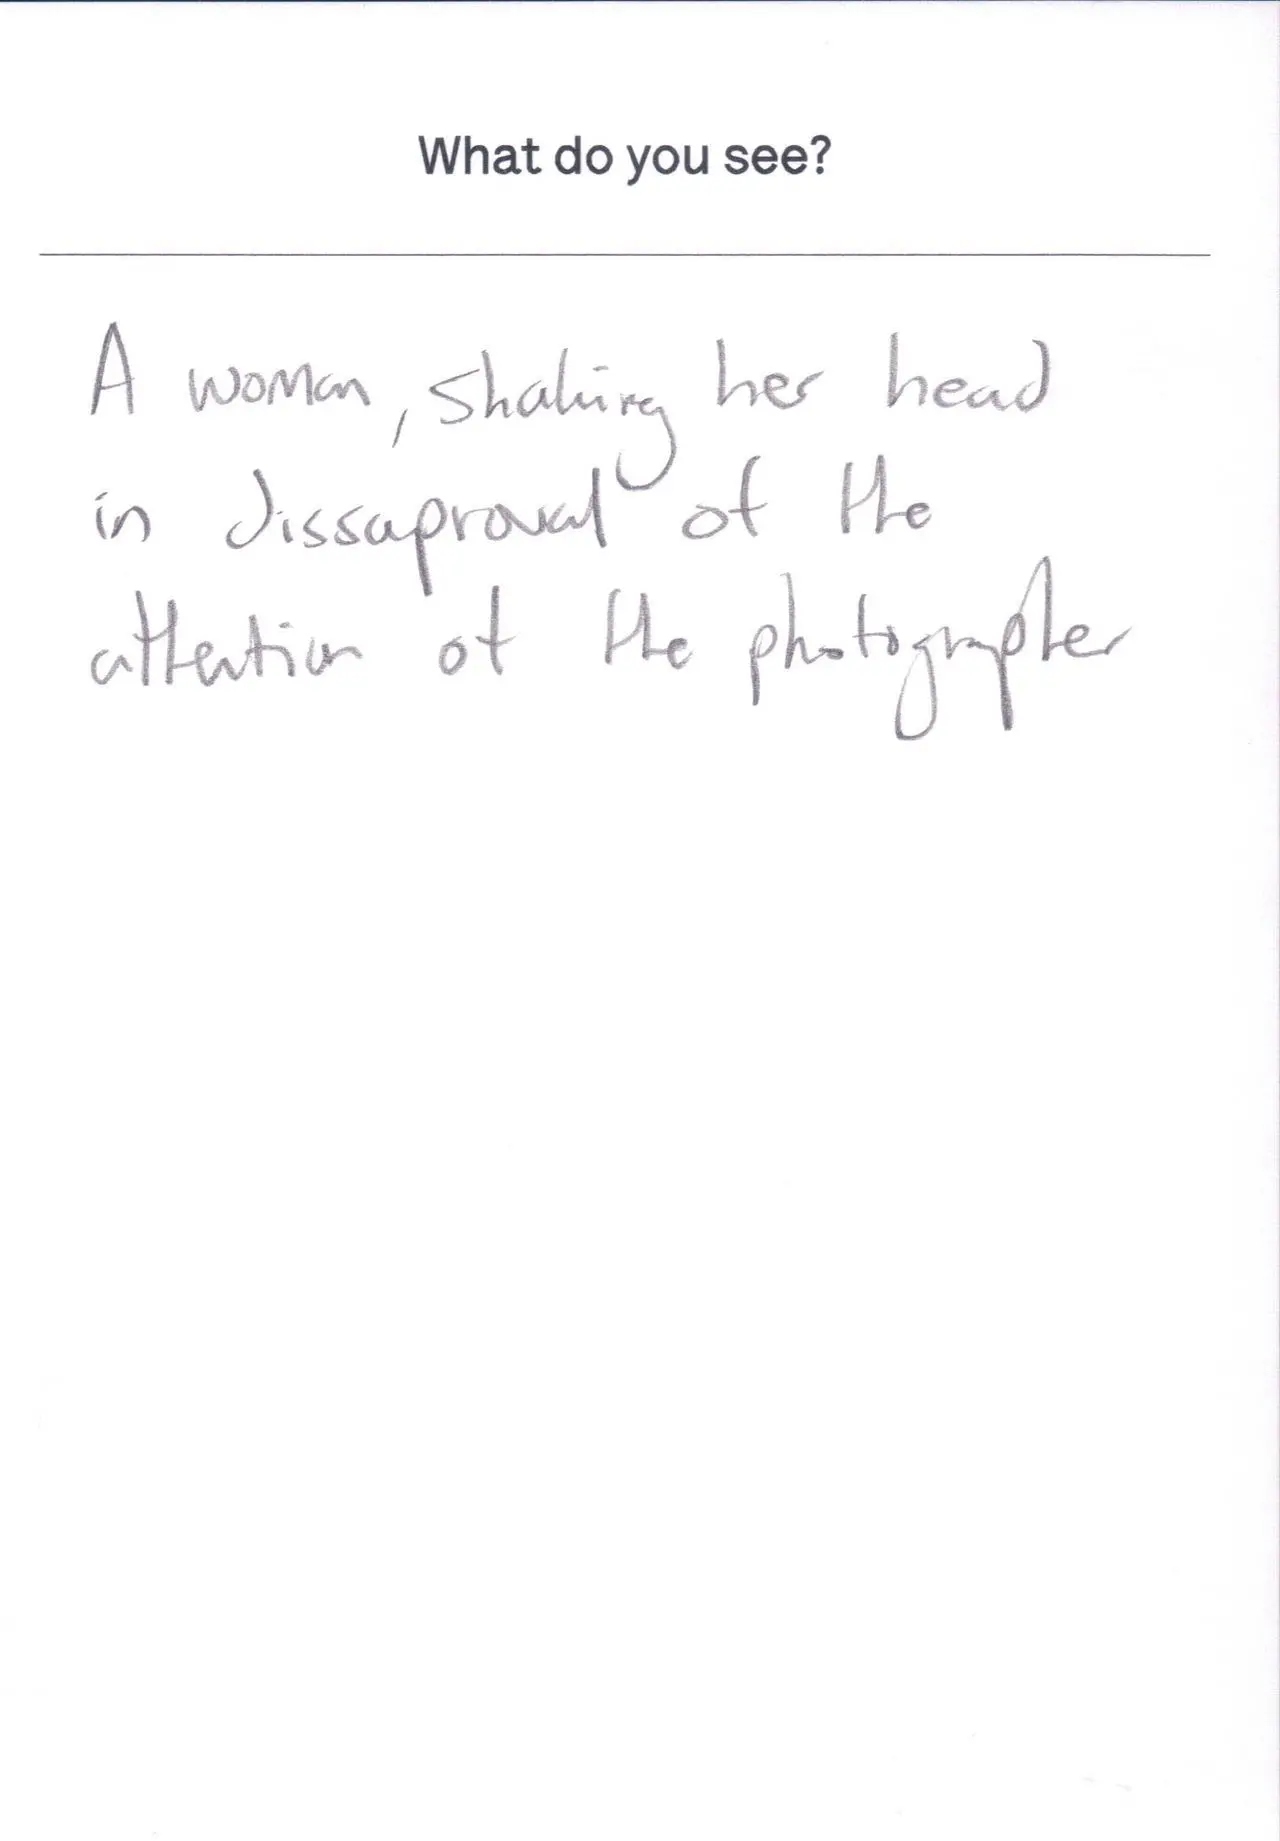 What do you see?
A woman, shaking her head
in dissaproval of the
attention of the photographer